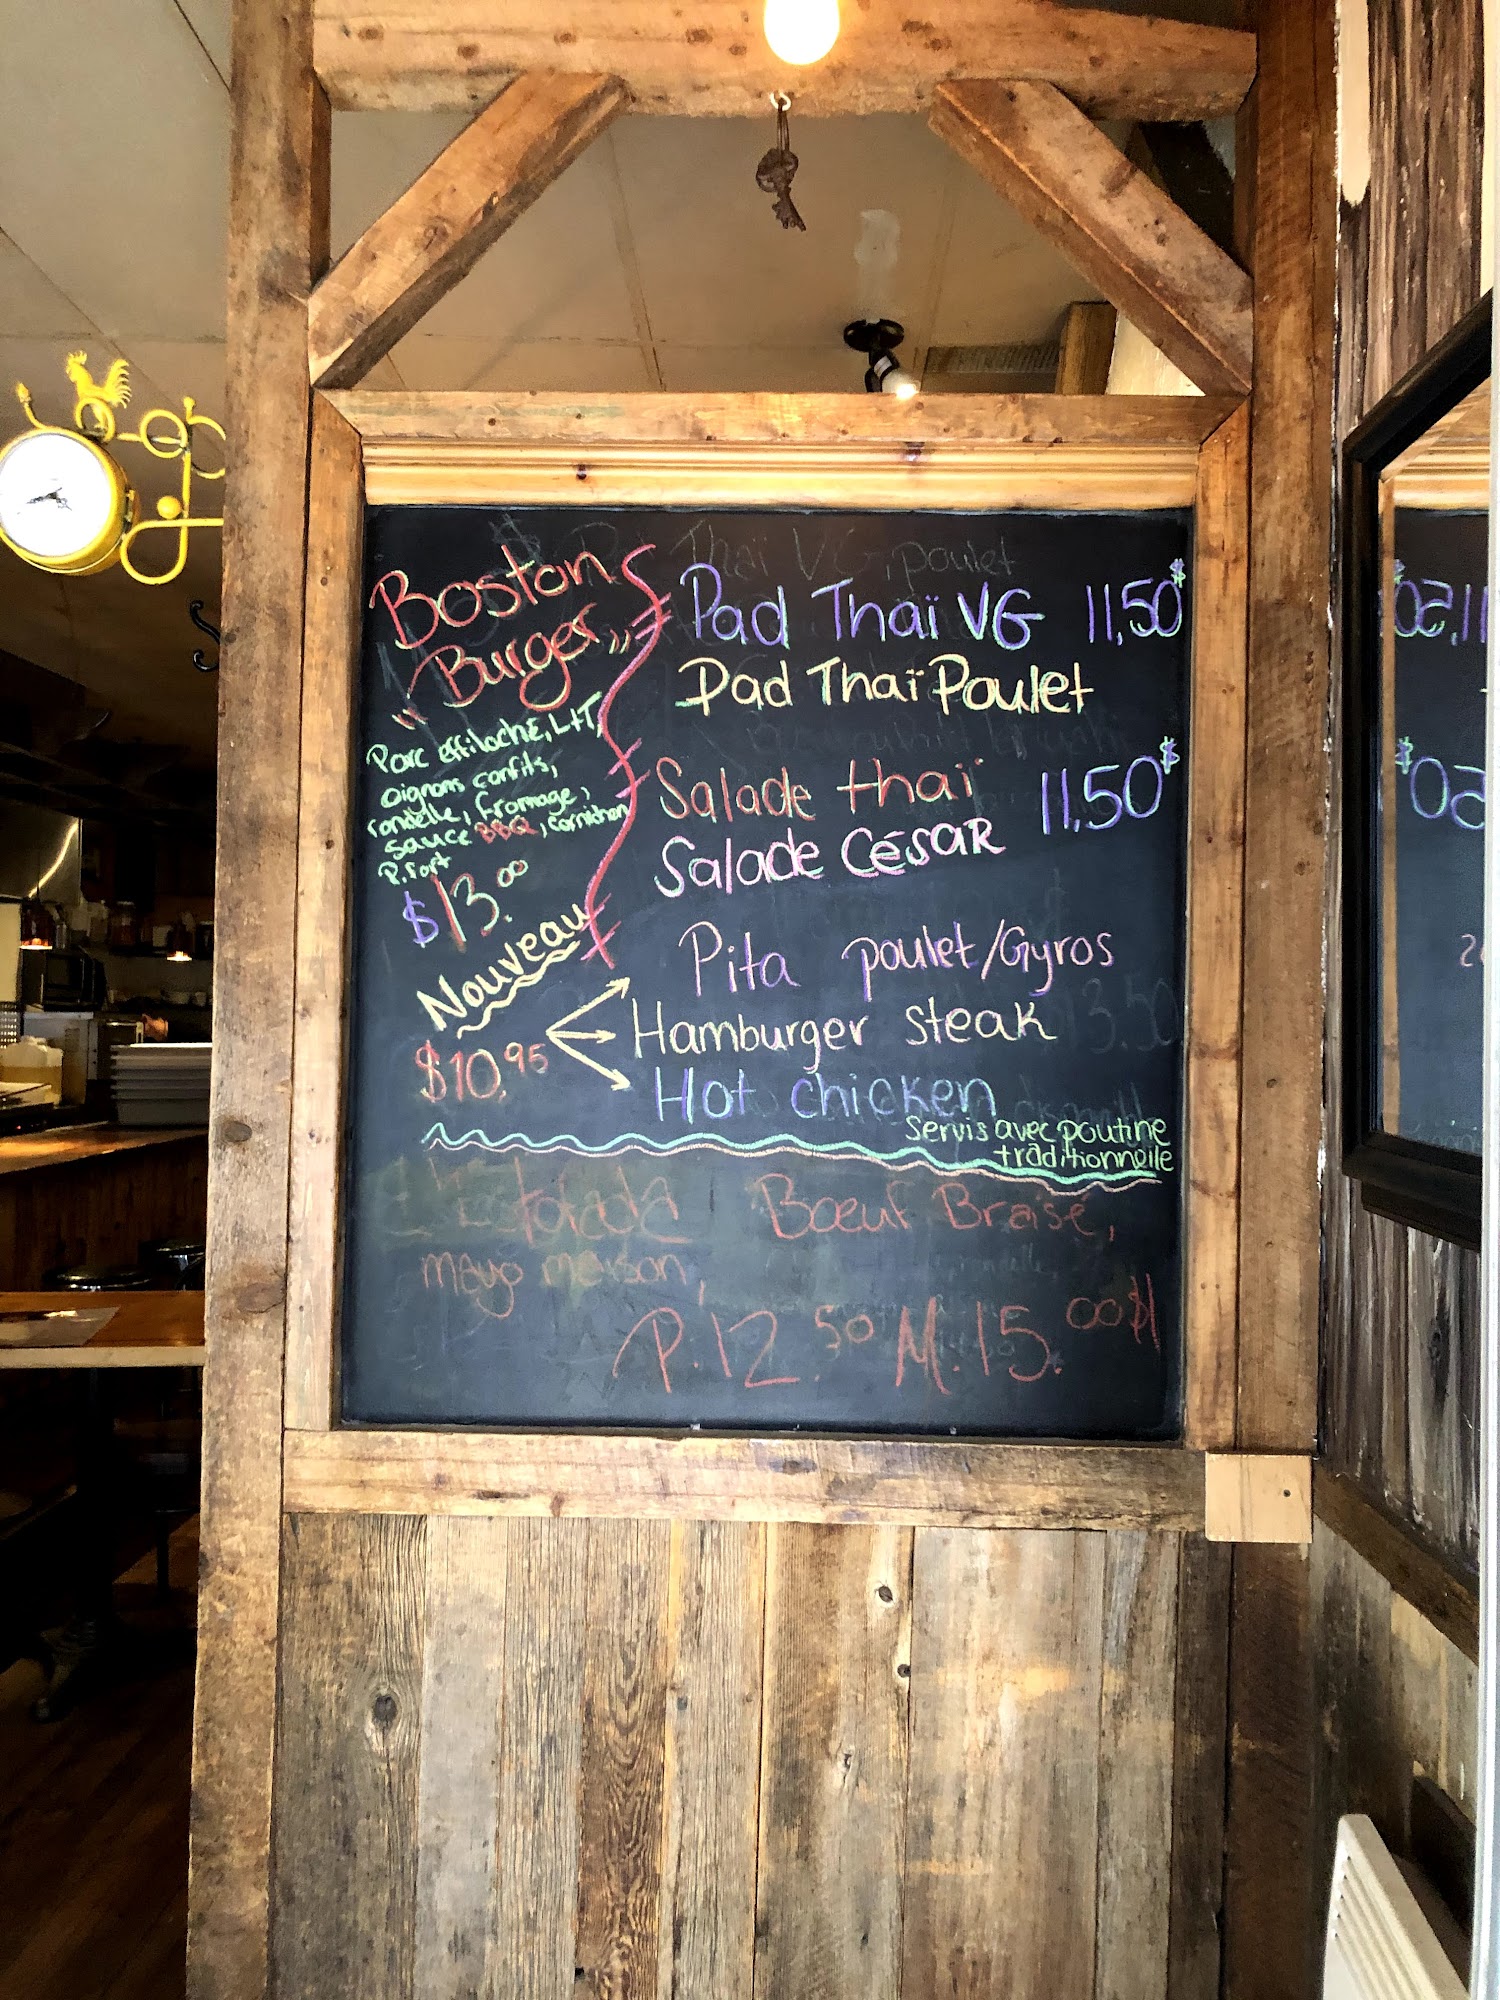 Boston
"Burger"
Porc effiloché, L+T,
oignons confits,
rondelle, fromage,
sauce BBQ, cornichon
P. fort
$13.00
Nouveau
$10,95
Pad Thaï VG 11,50$
Pad Thaï Poulet
Salade thaï 11,50$
Salade César
Pita poulet/Gyros
Hamburger steak
Hot chicken
Servis avec poutine
traditionnelle
Boeuf Braisé,
mayo maison,
P. 12.50 M. 15.00$